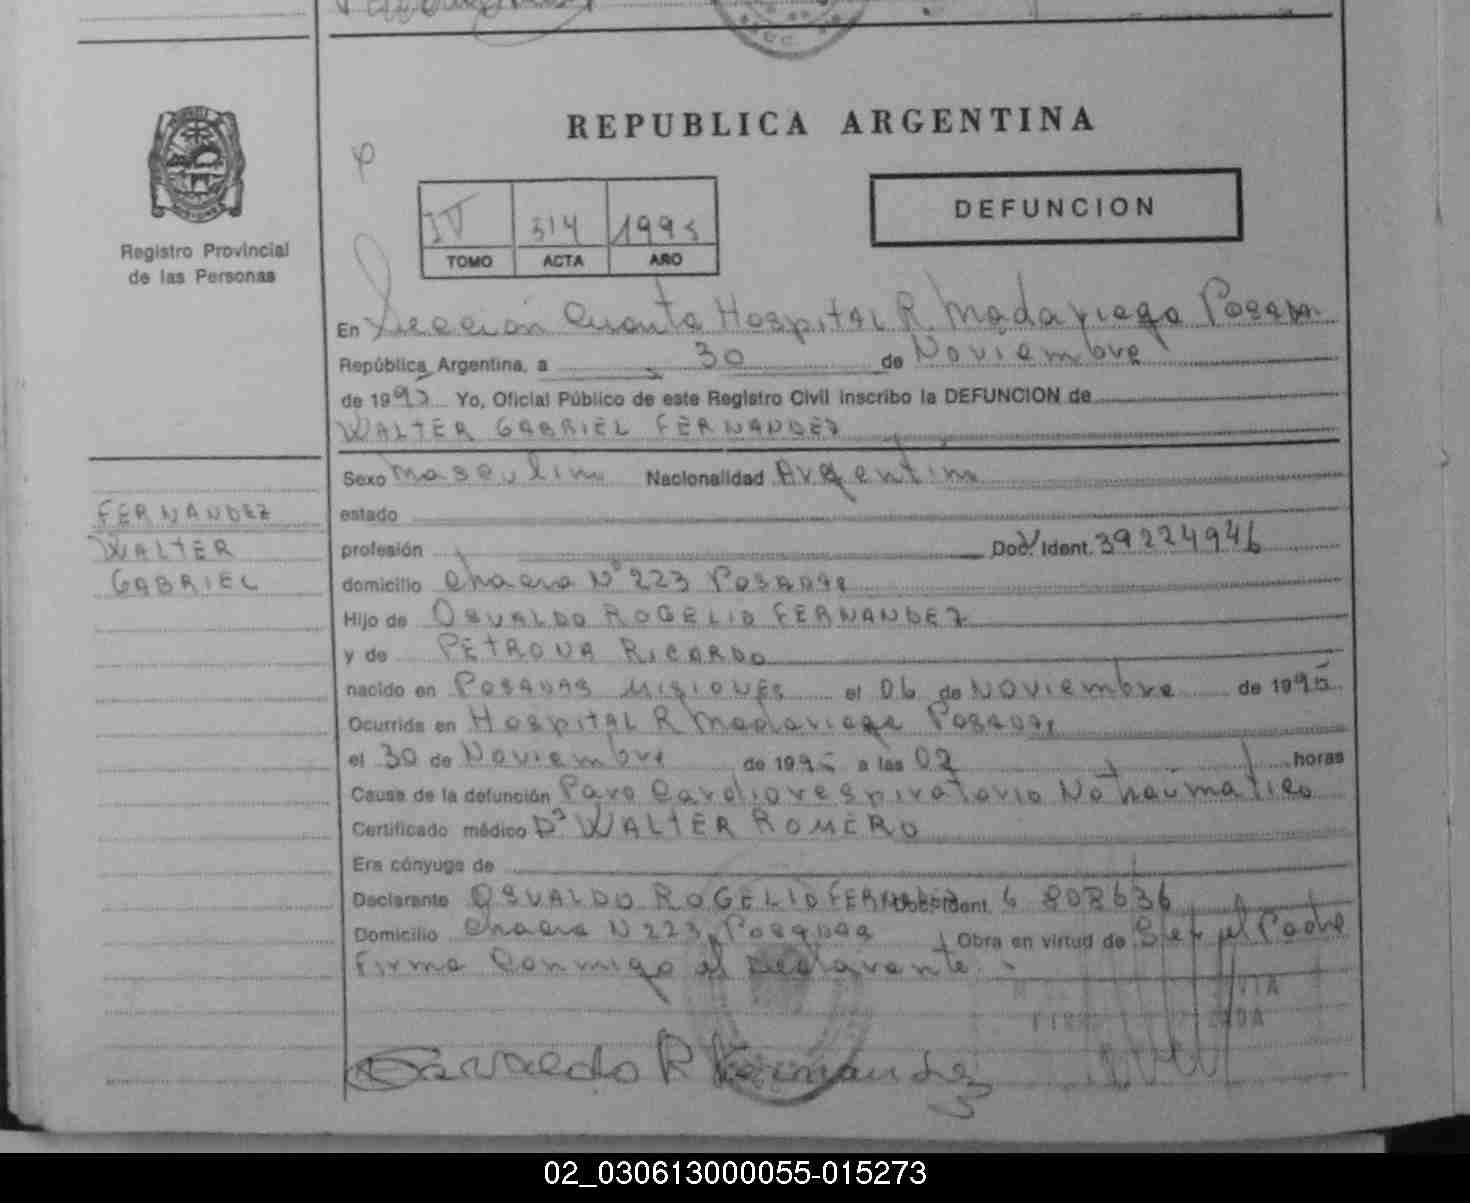 REPUBLICA ARGENTINA
Registro Provincial
de las Personas
IV 314 1995
TOMO ACTA AÑO
DEFUNCION
En Sección Cuarta Hospital R. Madariaga Posadas
República Argentina, a 30 de Noviembre
de 1995 Yo, Oficial Público de este Registro Civil inscribo la DEFUNCION de
WALTER GABRIEL FERNANDEZ
Sexo Masculino Nacionalidad Argentino
FERNANDEZ
WALTER
GABRIEL
estado
profesión Doc. Ident. 39224946
domicilio Chacra Nº 223 Posadas
Hijo de OSVALDO ROGELIO FERNANDEZ
y de PETRONA RICARDO
nacido en POSADAS MISIONES el 06 de NOVIEMBRE de 1995
Ocurrida en Hospital R Madariaga Posadas
el 30 de Noviembre de 1995 a las 02 horas
Cause de la defunción Paro Cardiorespiratorio No traumatico
Certificado médico Dr WALTER ROMERO
Era cónyuge de
Declarante OSVALDO ROGELIO FERNANDEZ Doc. Ident. 6 808636
Domicilio Chacra N 223 Posadas Obra en virtud de Ser el Padre
Firma Conmigo el declarante.
Osvaldo R Fernandez
02_030613000055-015273